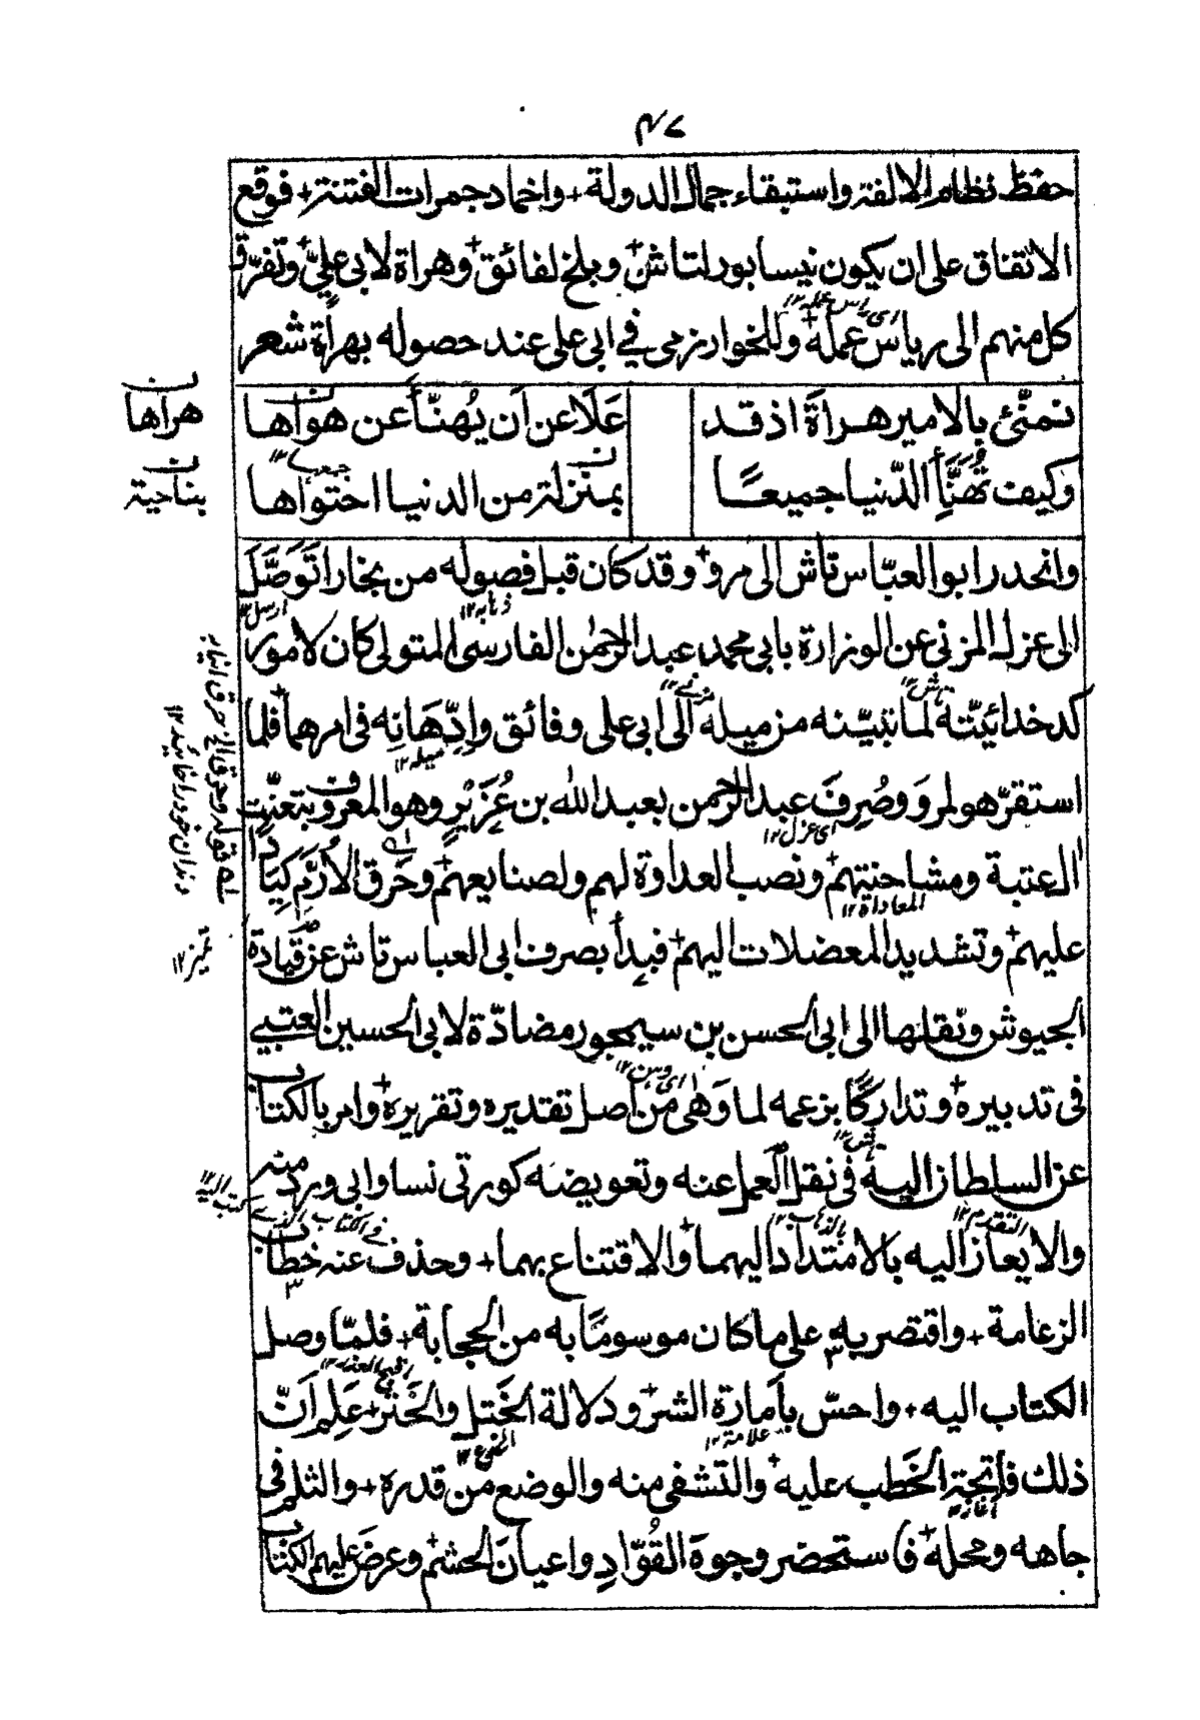 ٤٧
حفظ نظام الالفة واستبقاء جمال الدولة + واخماد جمرات الفتنة + فوقع
الاتفاق على ان يكون نيسابور لتاش + وبلخ لفائق + وهراة لابي علي + وتفرّق
كل منهم الى رياس عمله + وللخوارزمي في ابى على عند حصوله بهراة شعر
اى راس عمله ١٢
تمنّئ بالامير هراة اذ قد علا عن اَن يُهنّأ عن هواها
هراها
وكيف تُهنَّأ الدّنيا جميعًا بمنزلة من الدنيا احتواها
بناحية
وانحدر ابو العبّاس تاش الى مرو + وقد كان قبل فصوله من بخارا تَوصَّلَ
الى عزل المزنى عن الوزارة بابي محمد عبد الرحمٰن الفارسى المتولى كان لامور
ذهابه ١٢
كدخدائيّته لما تبيّنه من ميله الى ابى على وفائق وادِّهَانِه فى امرهما فلما
استقرّ هو لمرو وصُرِفَ عبد الرحمن بعبد الله بن عُزَيْرٍ وهو المعروف بتعنّت
اى عزل ١٢
العتبة ومشاحنتهم + ونصب العداوة لهم ولصنايعهم + وحَرَق الاُرَّم كِيَادًا
المعاداة ١٢
عليهم + وتشديد المعضلات اليهم + فبدأ بصرف ابى العباس تاش عن قيادة
الجيوش ونقلها الى ابى الحسن بن سيمجور مضادّة لابى الحسين العتبي
فى تدبيره + وتداركًا بزعمه لما وَهٰى من اصل تقديره وتقريره + وامر بالكتاب
عن السلطان اليه فى نقل العمل عنه وتعويضه كورتى نسا وابى ورد منه
والايعاز اليه بالامتداد اليهما + والاقتناع بهما + وحذف عنه خطاب
الزعامة + واقتصر به على ما كان موسومًا به من الحجابة + فلمّا وصل
الكتاب اليه + واحسّ بأمارة الشر + ودلالة الخَتل والخَتر + عَلِم اَنّ
علامة ١٢
ذلك فاتحة الخَطب عليه + والتشفى منه والوضع من قدره + والثلم فى
جاهه ومحله + فاستحضر وجوه القُوّادِ واعيان الحشم + وعرض عليهم الكتاب